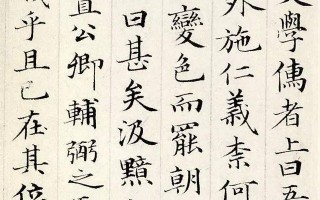 文學儒者上曰吾
外施仁義柰何
變色而罷朝
曰甚矣汲黯
置公卿輔弼之
乎且已在其位